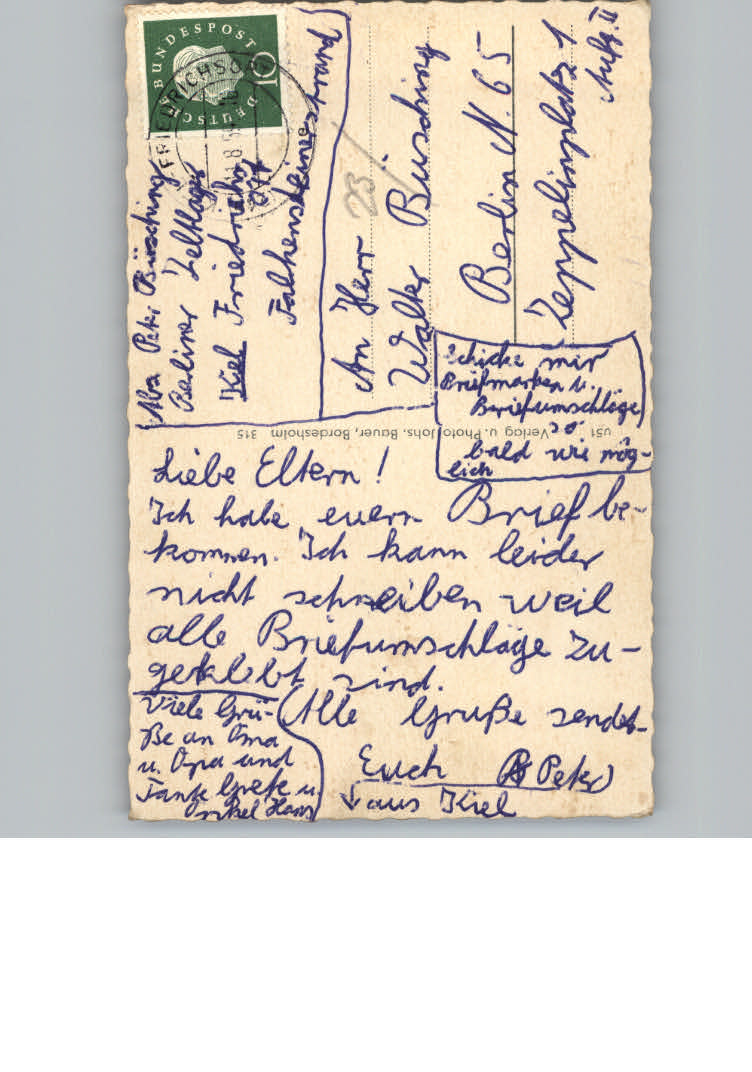 DEUTSCHE BUNDESPOST
10
FRIEDRICHSORT
Abs. Peter Büsching
Berliner Zeltlager
Kiel Friedrichs
ort
Falkensteinerstrand
23
An Herr
Walter Büsching
Berlin N. 65
Zeppelinplatz 1
Aufg. II
Schicke mir
Briefmarken u.
Briefumschläge
so
bald wie mög-
lich
U51 Verlag u. Photo Johs. Bauer, Bordesholm 315
Liebe Eltern!
Ich habe euern Brief be-
kommen. Ich kann leider
nicht schreiben weil
alle Briefumschläge zu-
geklebt sind.
Alle Grüße sendet
Euch Peter
aus Kiel
Viele Grü-
ße an Oma
u. Opa und
Tante Grete u.
onkel Hans